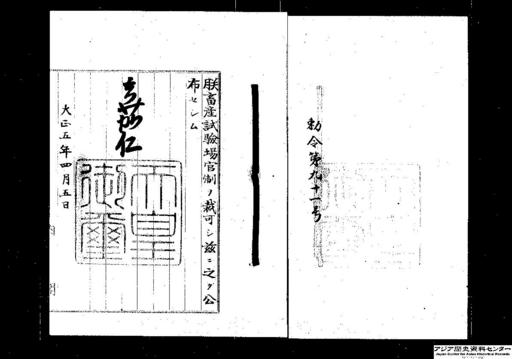 勅令第九十一号
朕畜産試験場官制ノ裁可シ茲ニ之ヲ公
布セシム
嘉仁
天皇
御璽
大正五年四月五日
内閣
アジア歴史資料センター
Japan Center for Asian Historical Records